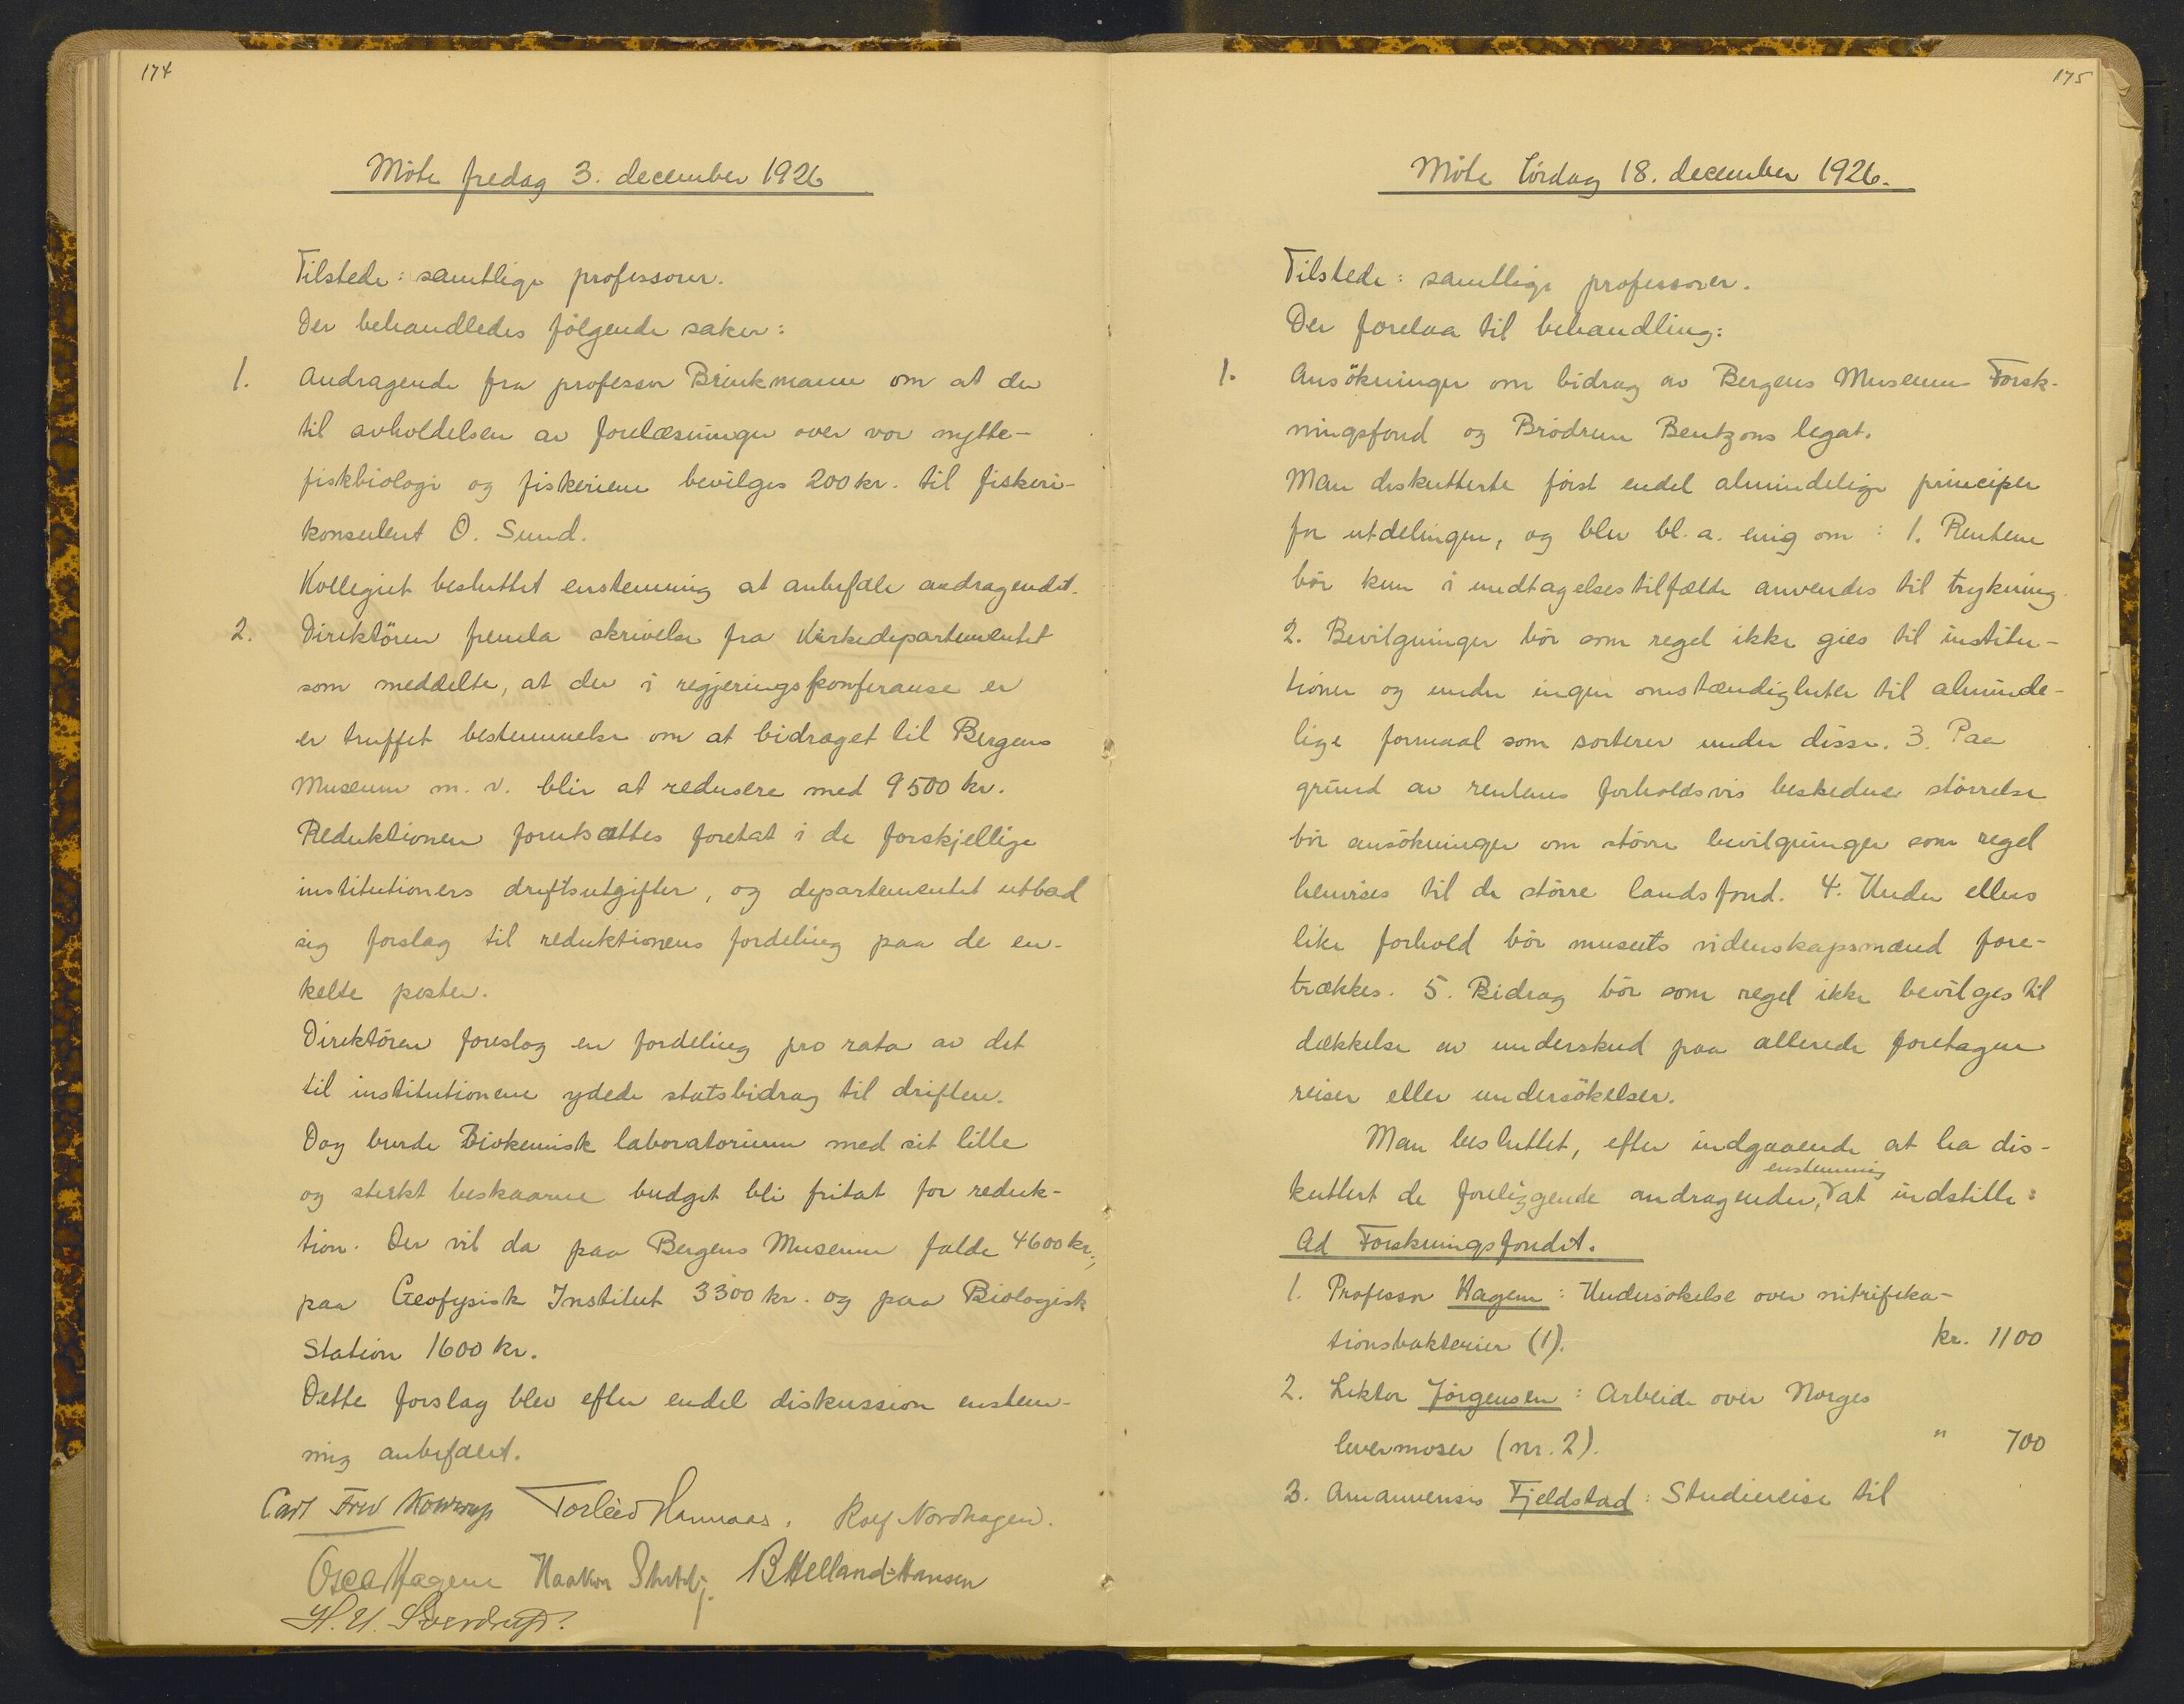 174
Möte fredag 3. december 1926
Tilstede: samtlige professorer.
Der behandledes fölgende saker:
1. Andragende fra professor Brinkmann om at der
til avholdelsen av forelæsninger over vor nytte-
fiskbiologi og fiskeriene bevilges 200 kr. til fiskeri-
konsulent O. Sund.
Kollegiet besluttet enstemmig at anbefale andragendet.
2. Direktören fremla skrivelse fra Kirkedepartementet
som meddelte, at der i regjeringskonferanse er
er truffet bestemmelse om at bidraget til Bergens
Museum m. v. blir at redusere med 9500 kr.
Reduktionen forutsættes foretat i de forskjellige
institutioners driftsutgifter, og departementet utbad
sig forslag til reduktionens fordeling paa de en-
kelte poster.
Direktören foreslog en fordeling pro rata av det
til institutionene ydede statsbidrag til driften.
Dog burde Biokemisk laboratorium med sit lille
og sterkt beskaarne budget bli fritat for reduk-
tion. Der vil da paa Bergens Museum falde 4600 kr.,
paa Geofysisk Institut 3300 kr. og paa Biologisk
Station 1600 kr.
Dette forslag blev efter endel diskussion enstem-
mig anbefalet.
Carl Fred Kolderup Torleiv Hannaas. Rolf Nordhagen.
Oscar Hagem Haakon Shetelig. B Helland-Hansen
H. U. Sverdrup.
175
Möte lördag 18. december 1926.
Tilstede: samtlige professorer.
Der forelaa til behandling:
1. Ansökninger om bidrag av Bergens Museums Forsk-
ningsfond og Brödrene Bentzons legat.
Man diskutterte först endel almindelige principer
for utdelingen, og blev bl. a. enig om: 1. Rentene
bör kun i undtagelsestilfælde anvendes til trykning.
2. Bevilgninger bör som regel ikke gies til institu-
tioner og under ingen omstændigheter til alminde-
lige formaal som sorterer under disse. 3. Paa
grund av rentens forholdsvis beskedne störrelse
bör ansökninger om större bevilgninger som regel
henvises til de större landsfond. 4. Under ellers
like forhold bör museets videnskapsmænd fore-
trækkes. 5. Bidrag bör som regel ikke bevilges til
dækkelse av underskud paa allerede foretagne
reiser eller undersökelser.
Man besluttet, efter indgaaende at ha dis-
enstemmig
kuttert de foreliggende andragender, at indstille:
Ad Forskningsfondet.
1. Professor Hagem: Undersökelse over nitrifika-
tionsbakterier (1). kr. 1100
2. Lektor Jörgensen: Arbeide over Norges
levermoser (nr. 2). " 700
3. Amanuensis Fjeldstad: Studiereise til